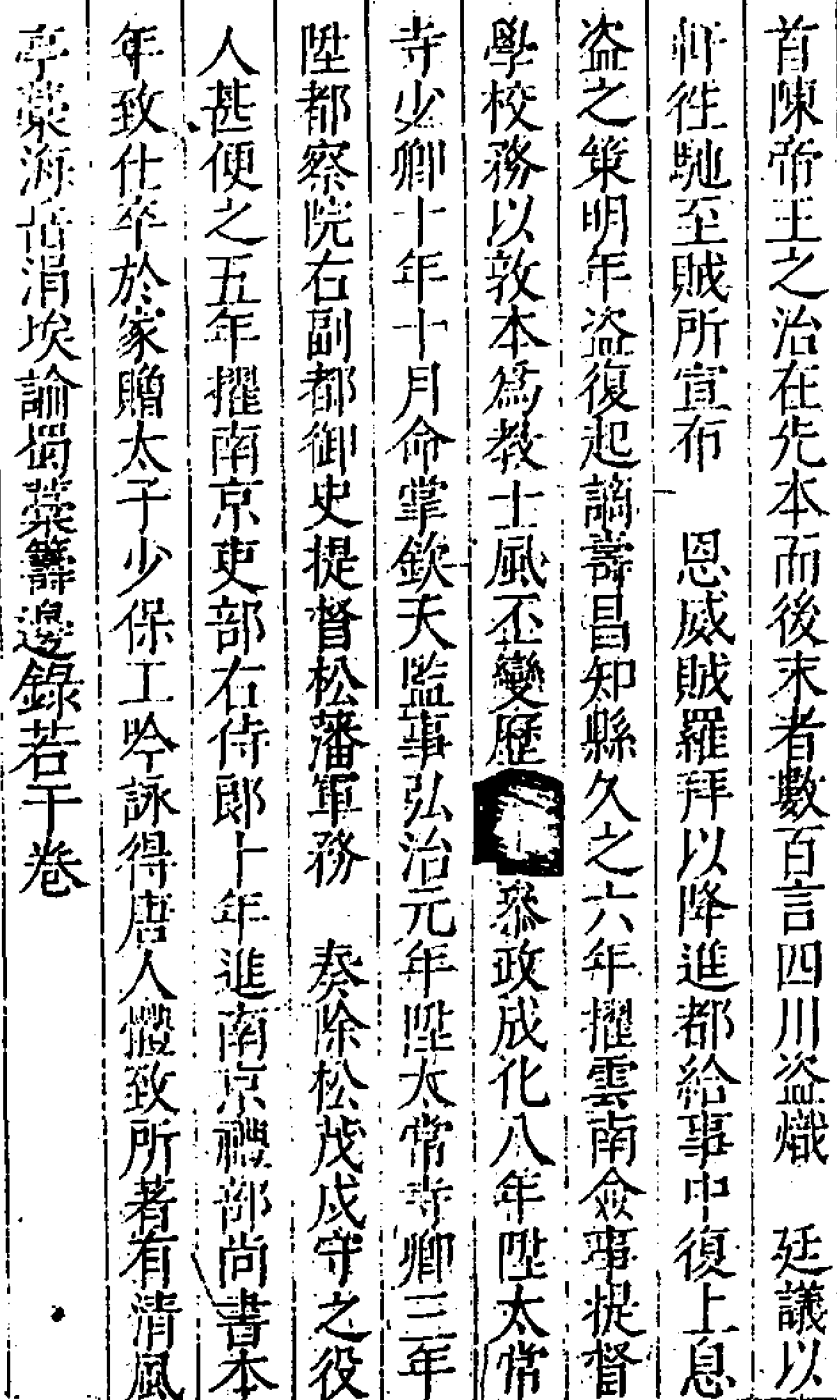 首陳帝王之治在先本而後末者數百言四川盗熾　廷議以
軒徃馳至賊所宣布　恩威賊羅拜以降進都給事中復上息
盗之策明年盗復起謫壽昌知縣久之六年擢雲南僉事提督
學校務以敦本爲教士風丕變歷參政成化八年陞太常
寺少卿十年十月命掌欽天監事弘治元年陞太常寺卿三年
陞都察院右副都御史提督松藩軍務　奏除松茂戍守之役
人甚便之五年擢南京吏部右侍郎十年進南京禮部尚書本
年致仕卒於家贈太子少保工吟詠得唐人體致所著有清風
亭藁海岳涓埃論蜀藁籌邊錄若干卷